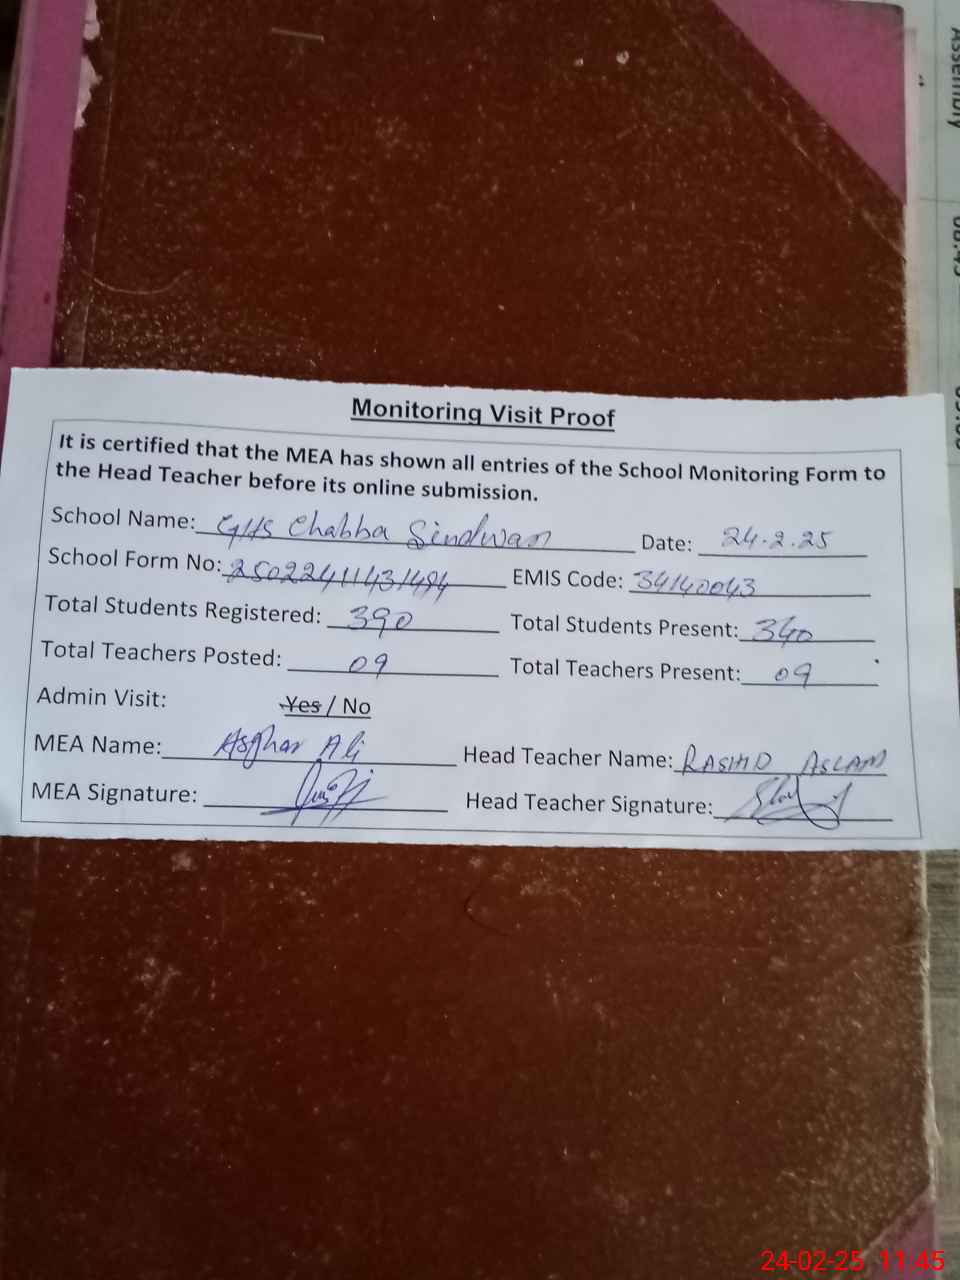 Monitoring Visit Proof
It is certified that the MEA has shown all entries of the School Monitoring Form to
the Head Teacher before its online submission.
School Name: GHS Chabba Sindwan Date: 24.2.25
School Form No: EMIS Code: 34140043
Total Students Registered: 390 Total Students Present: 340
Total Teachers Posted: 09 Total Teachers Present: 09
Admin Visit: Yes / No
MEA Name: Asghar Ali Head Teacher Name: RASHID ASLAM
MEA Signature: Head Teacher Signature:
Assembly
08:45
24-02-25 11:45